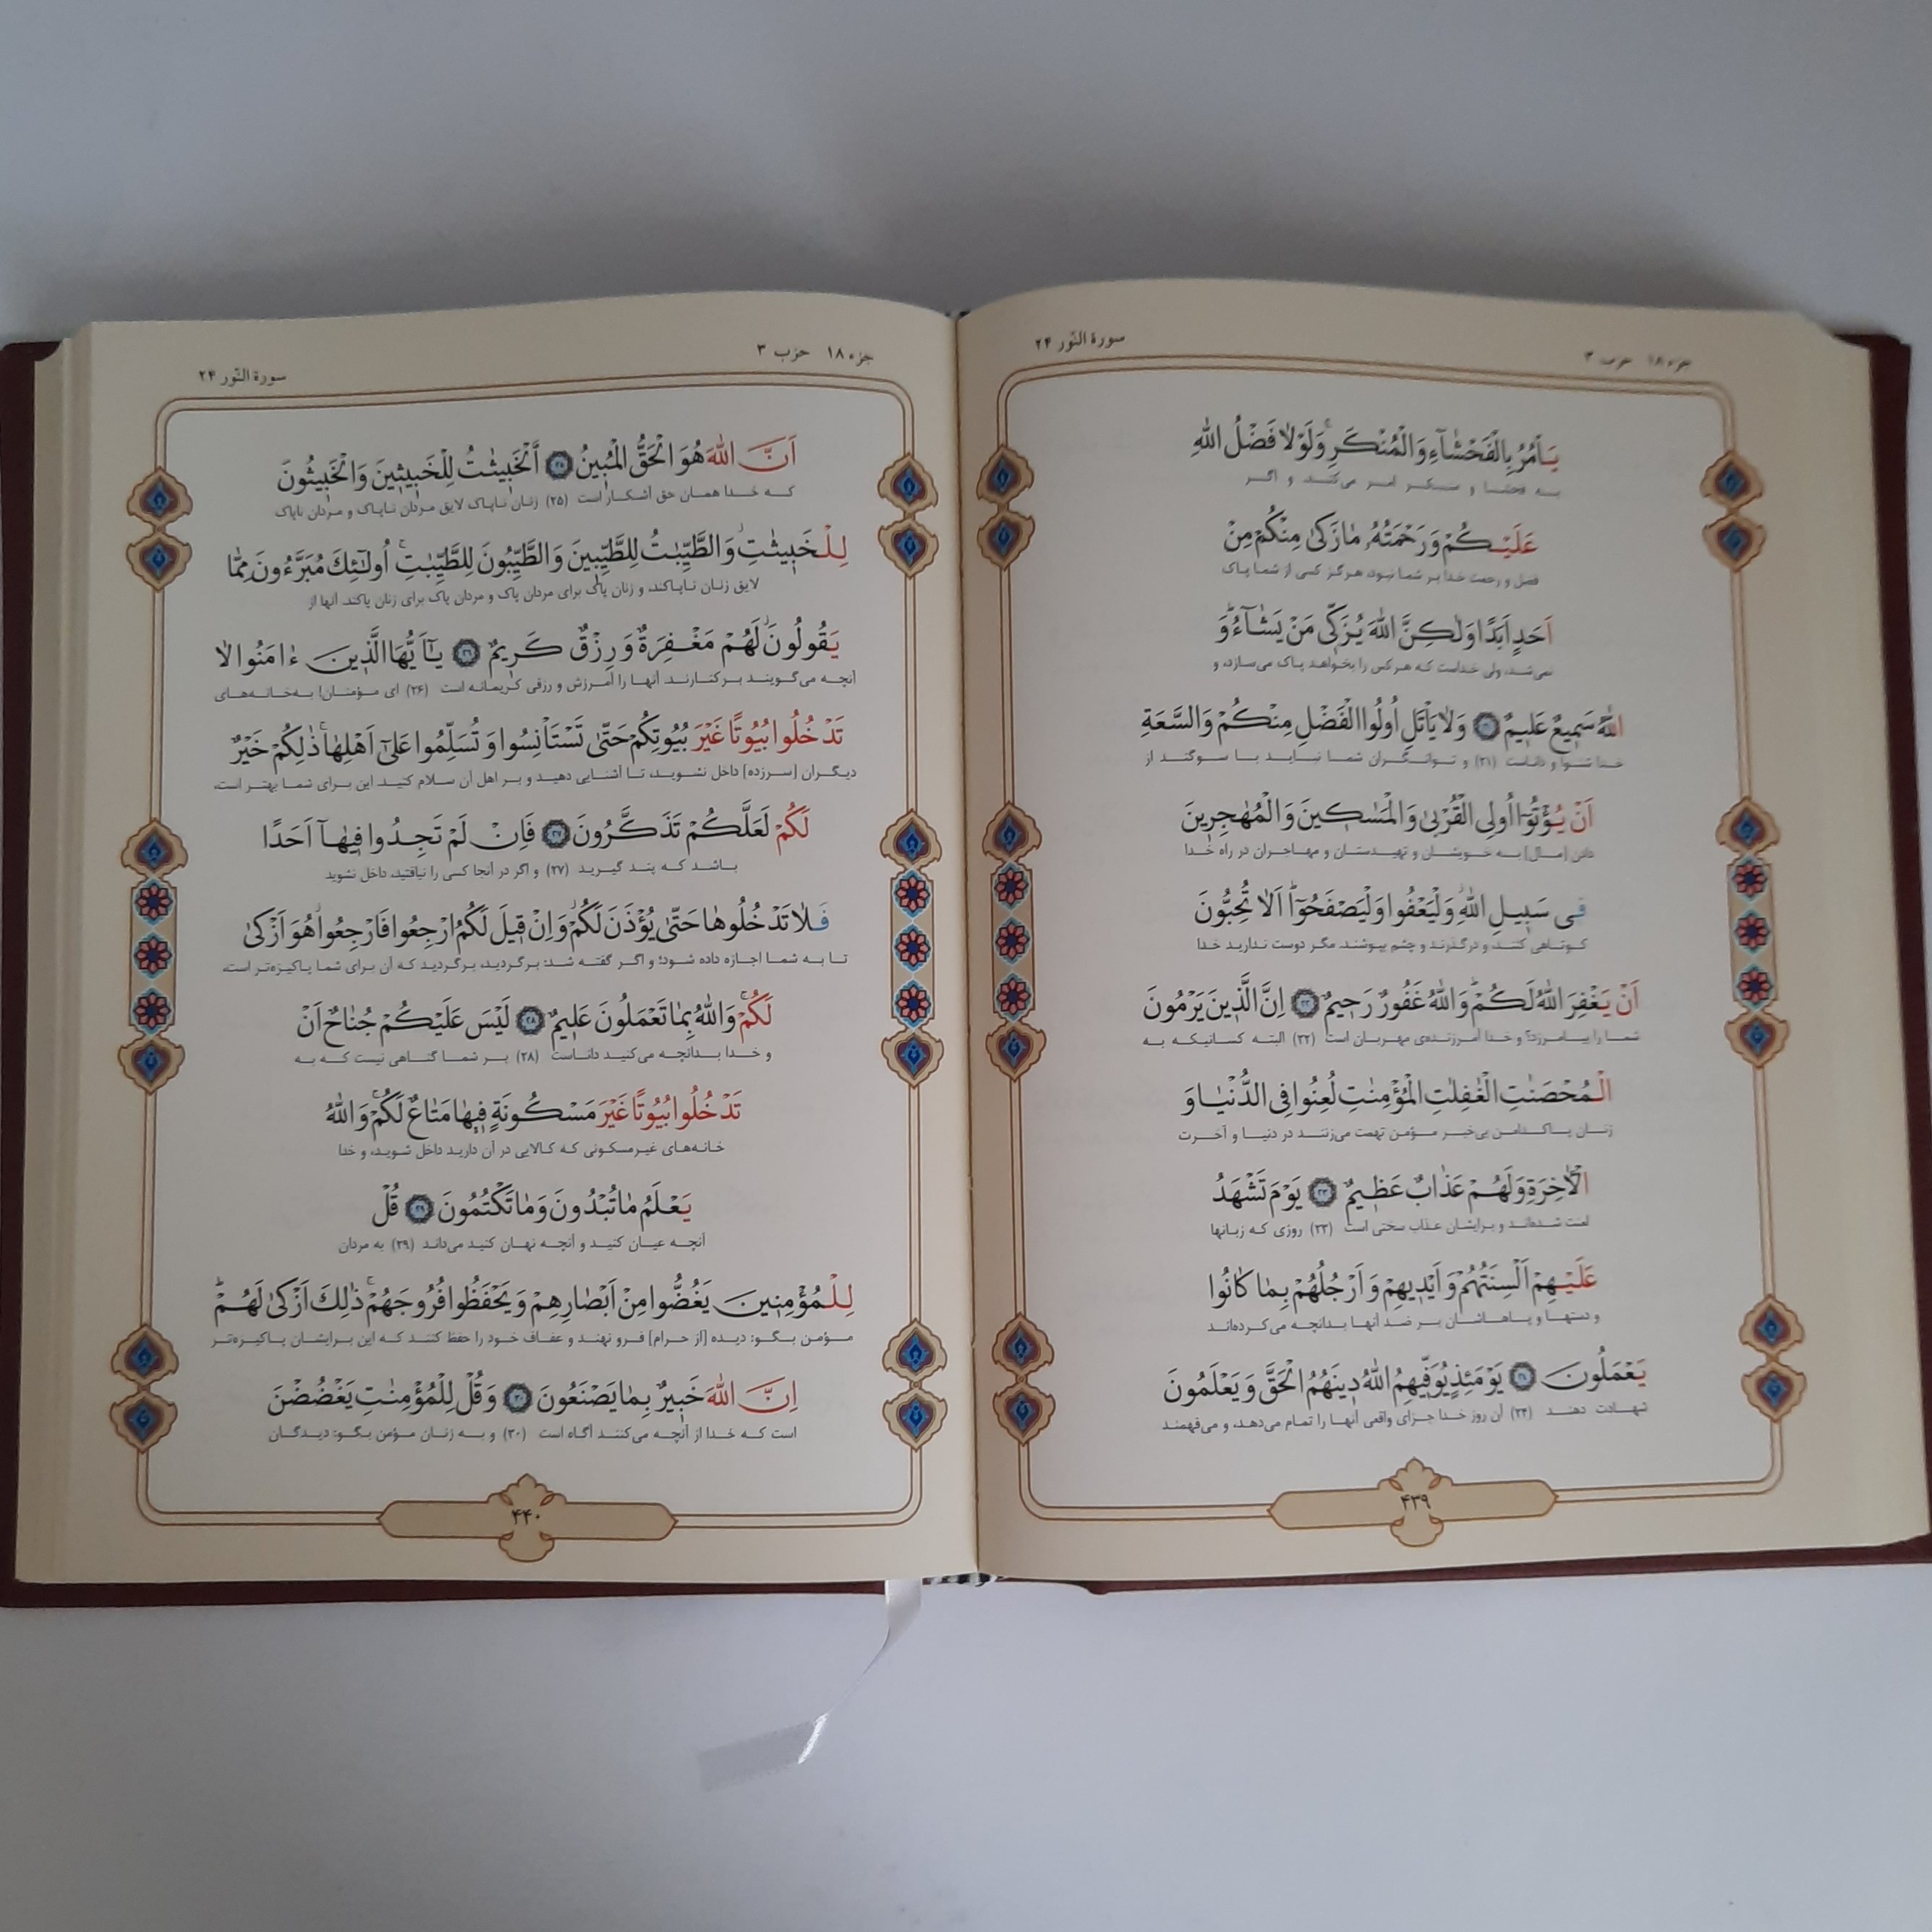 جزء ۱۸ حزب ۳
سورة النّور ۲۴
يَأْمُرُ بِالْفَحْشَآءِ وَالْمُنْكَرِ ۚ وَلَوْلَا فَضْلُ اللهِ
به فحشا و منکر امر می‌کند. و اگر
عَلَيْكُمْ وَرَحْمَتُهُ مَا زَكَىٰ مِنْكُمْ مِنْ
فضل و رحمت خدا بر شما نبود، هرگز کسی از شما پاک
اَحَدٍ اَبَدًا وَلٰكِنَّ اللهَ يُزَكّى مَنْ يَشَآءُ ۗ وَ
نمی‌شد، ولی خداست که هرکس را بخواهد پاک می‌سازد، و
اللهُ سَمِيعٌ عَلِيمٌ ۲۱ وَلَا يَأْتَلِ اُولُوا الْفَضْلِ مِنْكُمْ وَالسَّعَةِ
خدا شنوا و داناست (۲۱) و توانگران شما نباید با سوگند از
اَنْ يُؤْتُوٓا اُولِى الْقُرْبىٰ وَالْمَسٰكِينَ وَالْمُهٰجِرِينَ
دادن [مال] به خویشان و تهیدستان و مهاجران در راه خدا
فى سَبِيلِ اللهِ ۖ وَلْيَعْفُوا وَلْيَصْفَحُوٓا ۗ اَلَا تُحِبُّونَ
کوتاهی کنند، و درگذرند و چشم بپوشند. مگر دوست ندارید خدا
اَنْ يَغْفِرَ اللهُ لَكُمْ ۗ وَاللهُ غَفُورٌ رَحِيمٌ ۲۲ اِنَّ الَّذِينَ يَرْمُونَ
شما را بیامرزد؟ و خدا آمرزنده‌ی مهربان است (۲۲) البته کسانیکه به
الْمُحْصَنٰتِ الْغٰفِلٰتِ الْمُؤْمِنٰتِ لُعِنُوا فِى الدُّنْيَا وَ
زنان پاکدامن بی‌خبر مؤمن تهمت می‌زنند در دنیا و آخرت
الْاٰخِرَةِ وَلَهُمْ عَذَابٌ عَظِيمٌ ۲۳ يَوْمَ تَشْهَدُ
لعنت شده‌اند و برایشان عذاب سختی است (۲۳) روزی که زبانها
عَلَيْهِمْ اَلْسِنَتُهُمْ وَ اَيْدِيهِمْ وَ اَرْجُلُهُمْ بِمَا كَانُوا
و دستها و پاهاشان بر ضد آنها بدانچه می‌کرده‌اند
يَعْمَلُونَ ۲۴ يَوْمَئِذٍ يُوَفّيهِمُ اللهُ دِينَهُمُ الْحَقَّ وَ يَعْلَمُونَ
شهادت دهند (۲۴) آن روز خدا جزای واقعی آنها را تمام می‌دهد، و می‌فهمند
۴۳۹
جزء ۱۸ حزب ۳
سورة النّور ۲۴
اَنَّ اللهَ هُوَ الْحَقُّ الْمُبِينُ ۲۵ اَلْخَبِيثٰتُ لِلْخَبِيثِينَ وَالْخَبِيثُونَ
که خدا همان حق آشکار است (۲۵) زنان ناپاک لایق مردان ناپاک و مردان ناپاک
لِلْخَبِيثٰتِ ۖ وَالطَّيِّبٰتُ لِلطَّيِّبِينَ وَالطَّيِّبُونَ لِلطَّيِّبٰتِ ۚ اُولٰٓئِكَ مُبَرَّءُونَ مِمَّا
لایق زنان ناپاکند، و زنان پاک برای مردان پاک و مردان پاک برای زنان پاکند. آنها از
يَقُولُونَ ۖ لَهُمْ مَغْفِرَةٌ وَ رِزْقٌ كَرِيمٌ ۲۶ يٰٓاَيُّهَا الَّذِينَ ءٰامَنُوا لَا
آنچه می‌گویند برکنارند. آنها را آمرزش و رزقی کریمانه است (۲۶) ای مؤمنان! به‌خانه‌های
تَدْخُلُوا بُيُوتًا غَيْرَ بُيُوتِكُمْ حَتّىٰ تَسْتَأْنِسُوا وَ تُسَلِّمُوا عَلىٰٓ اَهْلِهَا ۚ ذٰلِكُمْ خَيْرٌ
دیگران [سرزده] داخل نشوید، تا آشنایی دهید و بر اهل آن سلام کنید. این برای شما بهتر است،
لَكُمْ لَعَلَّكُمْ تَذَكَّرُونَ ۲۷ فَاِنْ لَمْ تَجِدُوا فِيهَآ اَحَدًا
باشد که پند گیرید (۲۷) و اگر در آنجا کسی را نیافتید، داخل نشوید
فَلَا تَدْخُلُوهَا حَتّىٰ يُؤْذَنَ لَكُمْ ۖ وَ اِنْ قِيلَ لَكُمُ ارْجِعُوا فَارْجِعُوا ۖ هُوَ اَزْكىٰ
تا به شما اجازه داده شود؛ و اگر گفته شد: برگردید، برگردید که آن برای شما پاکیزه‌تر است،
لَكُمْ ۚ وَاللهُ بِمَا تَعْمَلُونَ عَلِيمٌ ۲۸ لَيْسَ عَلَيْكُمْ جُنَاحٌ اَنْ
و خدا بدانچه می‌کنید داناست (۲۸) بر شما گناهی نیست که به
تَدْخُلُوا بُيُوتًا غَيْرَ مَسْكُونَةٍ فِيهَا مَتَاعٌ لَكُمْ ۚ وَاللهُ
خانه‌های غیرمسکونی که کالایی در آن دارید داخل شوید، و خدا
يَعْلَمُ مَا تُبْدُونَ وَ مَا تَكْتُمُونَ ۲۹ قُلْ
آنچه عیان کنید و آنچه نهان کنید می‌داند (۲۹) به مردان
لِلْمُؤْمِنِينَ يَغُضُّوا مِنْ اَبْصَارِهِمْ وَ يَحْفَظُوا فُرُوجَهُمْ ۚ ذٰلِكَ اَزْكىٰ لَهُمْ ۗ
مؤمن بگو: دیده [از حرام] فرو نهند و عفاف خود را حفظ کنند که این برایشان پاکیزه‌تر
اِنَّ اللهَ خَبِيرٌ بِمَا يَصْنَعُونَ ۳۰ وَ قُلْ لِلْمُؤْمِنٰتِ يَغْضُضْنَ
است که خدا از آنچه می‌کنند آگاه است (۳۰) و به زنان مؤمن بگو: دیدگان
۴۴۰